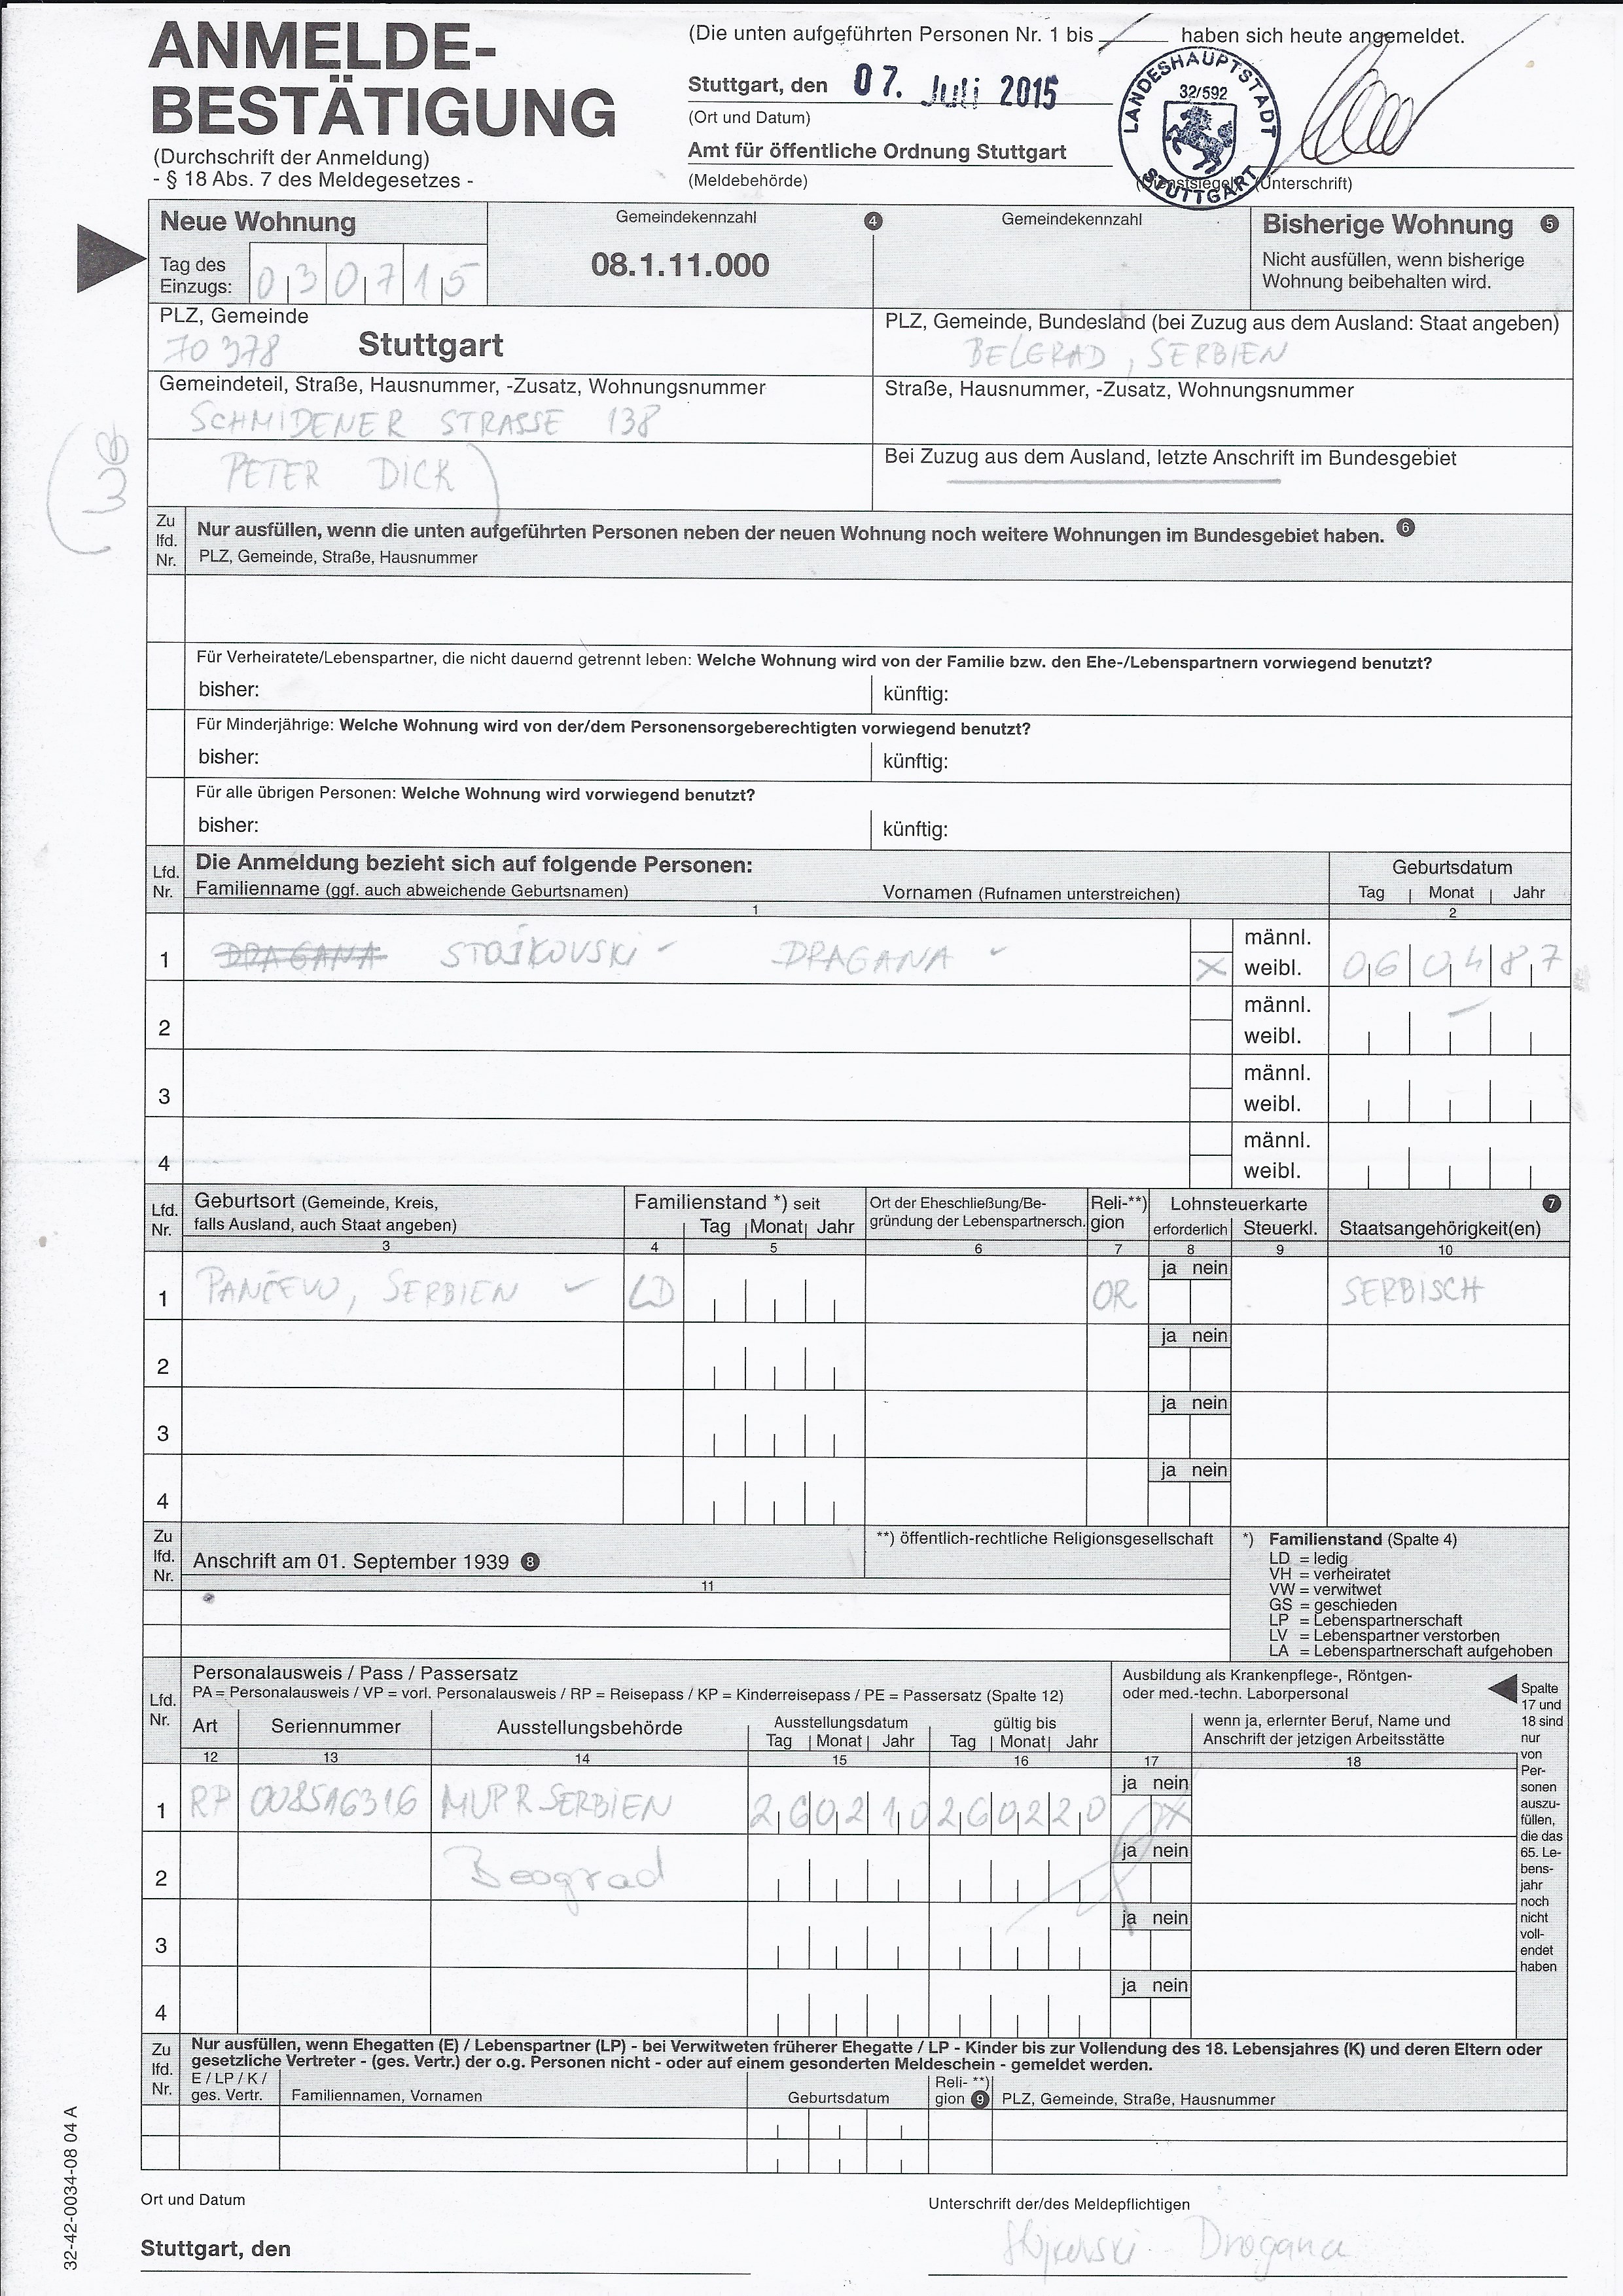 ANMELDE-
BESTÄTIGUNG
(Durchschrift der Anmeldung)
- § 18 Abs. 7 des Meldegesetzes -
(Die unten aufgeführten Personen Nr. 1 bis haben sich heute angemeldet.
Stuttgart, den 07. Juli 2015
(Ort und Datum)
Amt für öffentliche Ordnung Stuttgart
(Meldebehörde)
LANDESHAUPTSTADT
32/592
STUTTGART
(Dienstsiegel) (Unterschrift)
Neue Wohnung
Tag des
Einzugs: 030715
Gemeindekennzahl
08.1.11.000
4
Gemeindekennzahl
Bisherige Wohnung 5
Nicht ausfüllen, wenn bisherige
Wohnung beibehalten wird.
PLZ, Gemeinde
70378 Stuttgart
PLZ, Gemeinde, Bundesland (bei Zuzug aus dem Ausland: Staat angeben)
BELGRAD, SERBIEN
Gemeindeteil, Straße, Hausnummer, -Zusatz, Wohnungsnummer
SCHMIDENER STRASSE 138
Straße, Hausnummer, -Zusatz, Wohnungsnummer
PETER DICK)
Bei Zuzug aus dem Ausland, letzte Anschrift im Bundesgebiet
Zu
lfd.
Nr.
Nur ausfüllen, wenn die unten aufgeführten Personen neben der neuen Wohnung noch weitere Wohnungen im Bundesgebiet haben. 6
PLZ, Gemeinde, Straße, Hausnummer
Für Verheiratete/Lebenspartner, die nicht dauernd getrennt leben: Welche Wohnung wird von der Familie bzw. den Ehe-/Lebenspartnern vorwiegend benutzt?
bisher: künftig:
Für Minderjährige: Welche Wohnung wird von der/dem Personensorgeberechtigten vorwiegend benutzt?
bisher: künftig:
Für alle übrigen Personen: Welche Wohnung wird vorwiegend benutzt?
bisher: künftig:
Lfd.
Nr.
Die Anmeldung bezieht sich auf folgende Personen:
Familienname (ggf. auch abweichende Geburtsnamen) Vornamen (Rufnamen unterstreichen)
1
Geburtsdatum
Tag Monat Jahr
2
1 DRAGANA STOJKOVSKI DRAGANA männl.
X weibl. 060487
2 männl.
weibl.
3 männl.
weibl.
4 männl.
weibl.
Lfd.
Nr.
Geburtsort (Gemeinde, Kreis,
falls Ausland, auch Staat angeben)
Familienstand *) seit
Tag Monat Jahr
Ort der Eheschließung/Be-
gründung der Lebenspartnersch.
Reli-**)
gion
Lohnsteuerkarte
erforderlich Steuerkl.
7
Staatsangehörigkeit(en)
3 4 5 6 7 8 9 10
1 PANČEVO, SERBIEN LD OR ja nein SERBISCH
2 ja nein
3 ja nein
4 ja nein
Zu
lfd.
Nr.
Anschrift am 01. September 1939 8
11
**) öffentlich-rechtliche Religionsgesellschaft
*) Familienstand (Spalte 4)
LD = ledig
VH = verheiratet
VW = verwitwet
GS = geschieden
LP = Lebenspartnerschaft
LV = Lebenspartner verstorben
LA = Lebenspartnerschaft aufgehoben
Lfd.
Nr.
Personalausweis / Pass / Passersatz
PA = Personalausweis / VP = vorl. Personalausweis / RP = Reisepass / KP = Kinderreisepass / PE = Passersatz (Spalte 12)
Art Seriennummer Ausstellungsbehörde
Ausstellungsdatum
Tag Monat Jahr
gültig bis
Tag Monat Jahr
Ausbildung als Krankenpflege-, Röntgen-
oder med.-techn. Laborpersonal
wenn ja, erlernter Beruf, Name und
Anschrift der jetzigen Arbeitsstätte
12 13 14 15 16 17 18
Spalte
17 und
18 sind
nur
von
Per-
sonen
auszu-
füllen,
die das
65. Le-
bens-
jahr
noch
nicht
voll-
endet
haben
1 RP 008516316 MUP R SERBIEN 260210 260220 ja nein X
2 Beograd ja nein
3 ja nein
4 ja nein
Zu
lfd.
Nr.
Nur ausfüllen, wenn Ehegatten (E) / Lebenspartner (LP) - bei Verwitweten früherer Ehegatte / LP - Kinder bis zur Vollendung des 18. Lebensjahres (K) und deren Eltern oder
gesetzliche Vertreter - (ges. Vertr.) der o.g. Personen nicht - oder auf einem gesonderten Meldeschein - gemeldet werden.
E / LP / K /
ges. Vertr.
Familiennamen, Vornamen
Geburtsdatum
Reli- **)
gion 9
PLZ, Gemeinde, Straße, Hausnummer
Ort und Datum
Stuttgart, den
Unterschrift der/des Meldepflichtigen
Stojkovski Dragana
32-42-0034-08 04 A